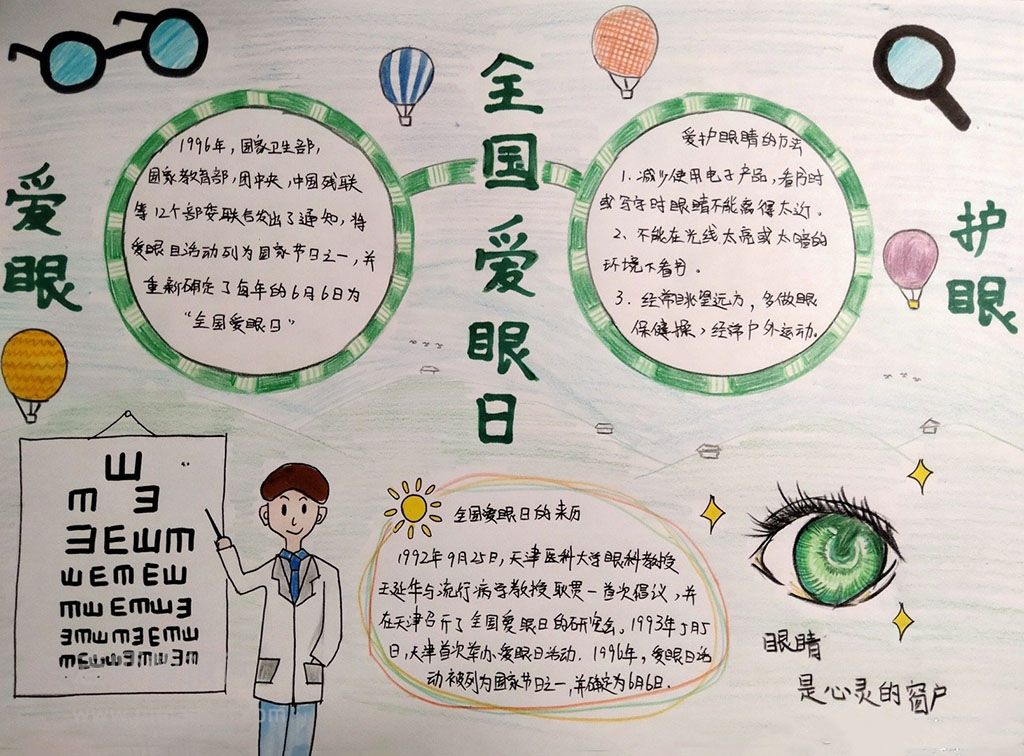 全国爱眼日
爱眼
护眼
1996年，国家卫生部，
国家教育部，团中央，中国残联
等12个部委联合发出了通知，将
爱眼日活动列为国家节日之一，并
重新确定了每年的6月6日为
“全国爱眼日”
爱护眼睛的方法
1. 减少使用电子产品，看书时
或写字时眼睛不能离得太近。
2、不能在光线太亮或太暗的
环境下看书。
3. 经常眺望远方，多做眼
保健操，经常户外运动。
E
m 3
全国爱眼日的来历
1992年9月25日，天津医科大学眼科教授
王延华与流行病学教授耿贯一首次倡议，并
在天津召开了全国爱眼日的研究会。1993年5月5
日，天津首次举办爱眼日活动. 1996年，爱眼日活
动被列为国家节日之一，并确定为6月6日.
眼睛
是心灵的窗户